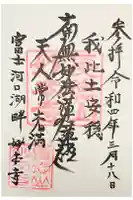 参拝 令和四年三月十八日
我此土安穏
南無妙法蓮華経
天人常充満
富士河口湖畔 妙本寺